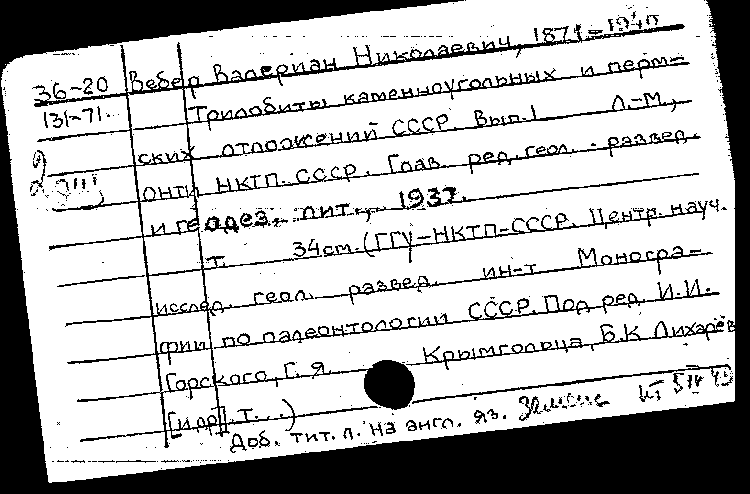 36-20 Вебер Валериан Николаевич, 1871-1940
131-71. Трилобиты каменноугольных и перм-
ских отложений СССР. Вып. 1 Л.-М.,
ОНТИ НКТП СССР. Глав. ред. геол. - развед.
и геодез. лит., 1937.
т. 34см. (ГГУ-НКТП-СССР. Центр. науч.
исслед. геол. развед. ин-т Моногра-
фии по палеонтологии СССР. Под ред. И.И.
Горского, Г. Я. Крымгольца, Б.К Лихарёв
[и др]. т...)
Доб. тит. л. на англ. яз.